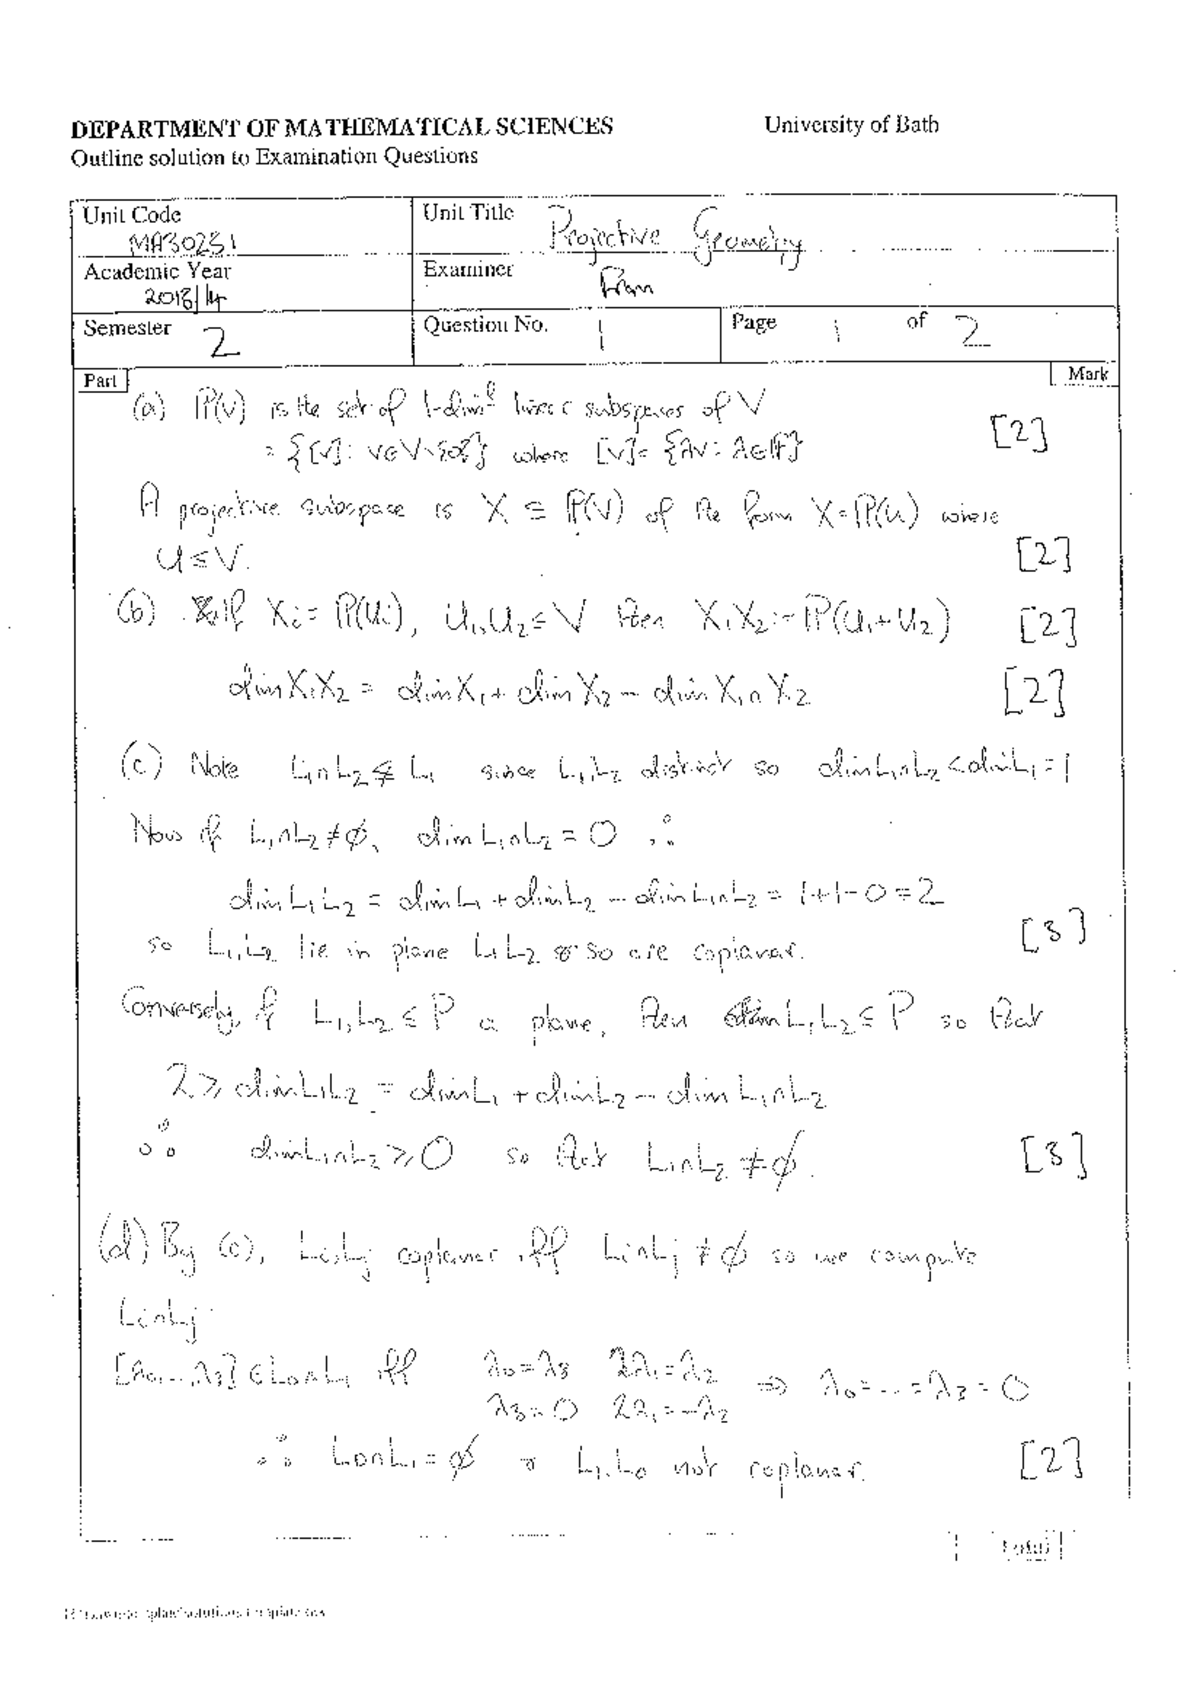 DEPARTMENT OF MATHEMATICAL SCIENCES University of Bath
Outline solution to Examination Questions
Unit Code MA30231
Unit Title Projective Geometry
Academic Year 2013/14
Examiner Fran
Semester 2
Question No. 1
Page 1 of 2
Part Mark
(a) P(V) is the set of 1-dim'l linear subspaces of V
= {[v]: v∈V\{0}} where [v]= {λv: λ∈F} [2]
A projective subspace is X ⊆ P(V) of the form X=P(U) where
U≤V. [2]
(b) If Xi = P(Ui), U1,U2≤V then X1X2:=P(U1+U2) [2]
dimX1X2 = dimX1 + dimX2 - dimX1∩X2 [2]
(c) Note L1∩L2⊊L1 since L1,L2 distinct so dimL1∩L2<dimL1=1
Now if L1∩L2≠∅, dimL1∩L2=0 ∴
dimL1L2 = dimL1+dimL2-dimL1∩L2 = 1+1-0=2
so L1,L2 lie in plane L1L2 & so are coplanar. [3]
Conversely, if L1,L2⊆P a plane, then L1L2⊆P so that
2≥dimL1L2 = dimL1+dimL2-dimL1∩L2
∴ dimL1∩L2≥0 so that L1∩L2≠∅. [3]
(d) By (c), Li,Lj coplanar iff Li∩Lj≠∅ so we compute
Li∩Lj
[λ0,..,λ3]∈L0∩L1 iff λ0=λ3 2λ1=λ2
λ3=0 2λ1=-λ2 ⇒ λ0=...=λ3=0
∴ L0∩L1=∅ & L1,L0 not coplanar. [2]
Total